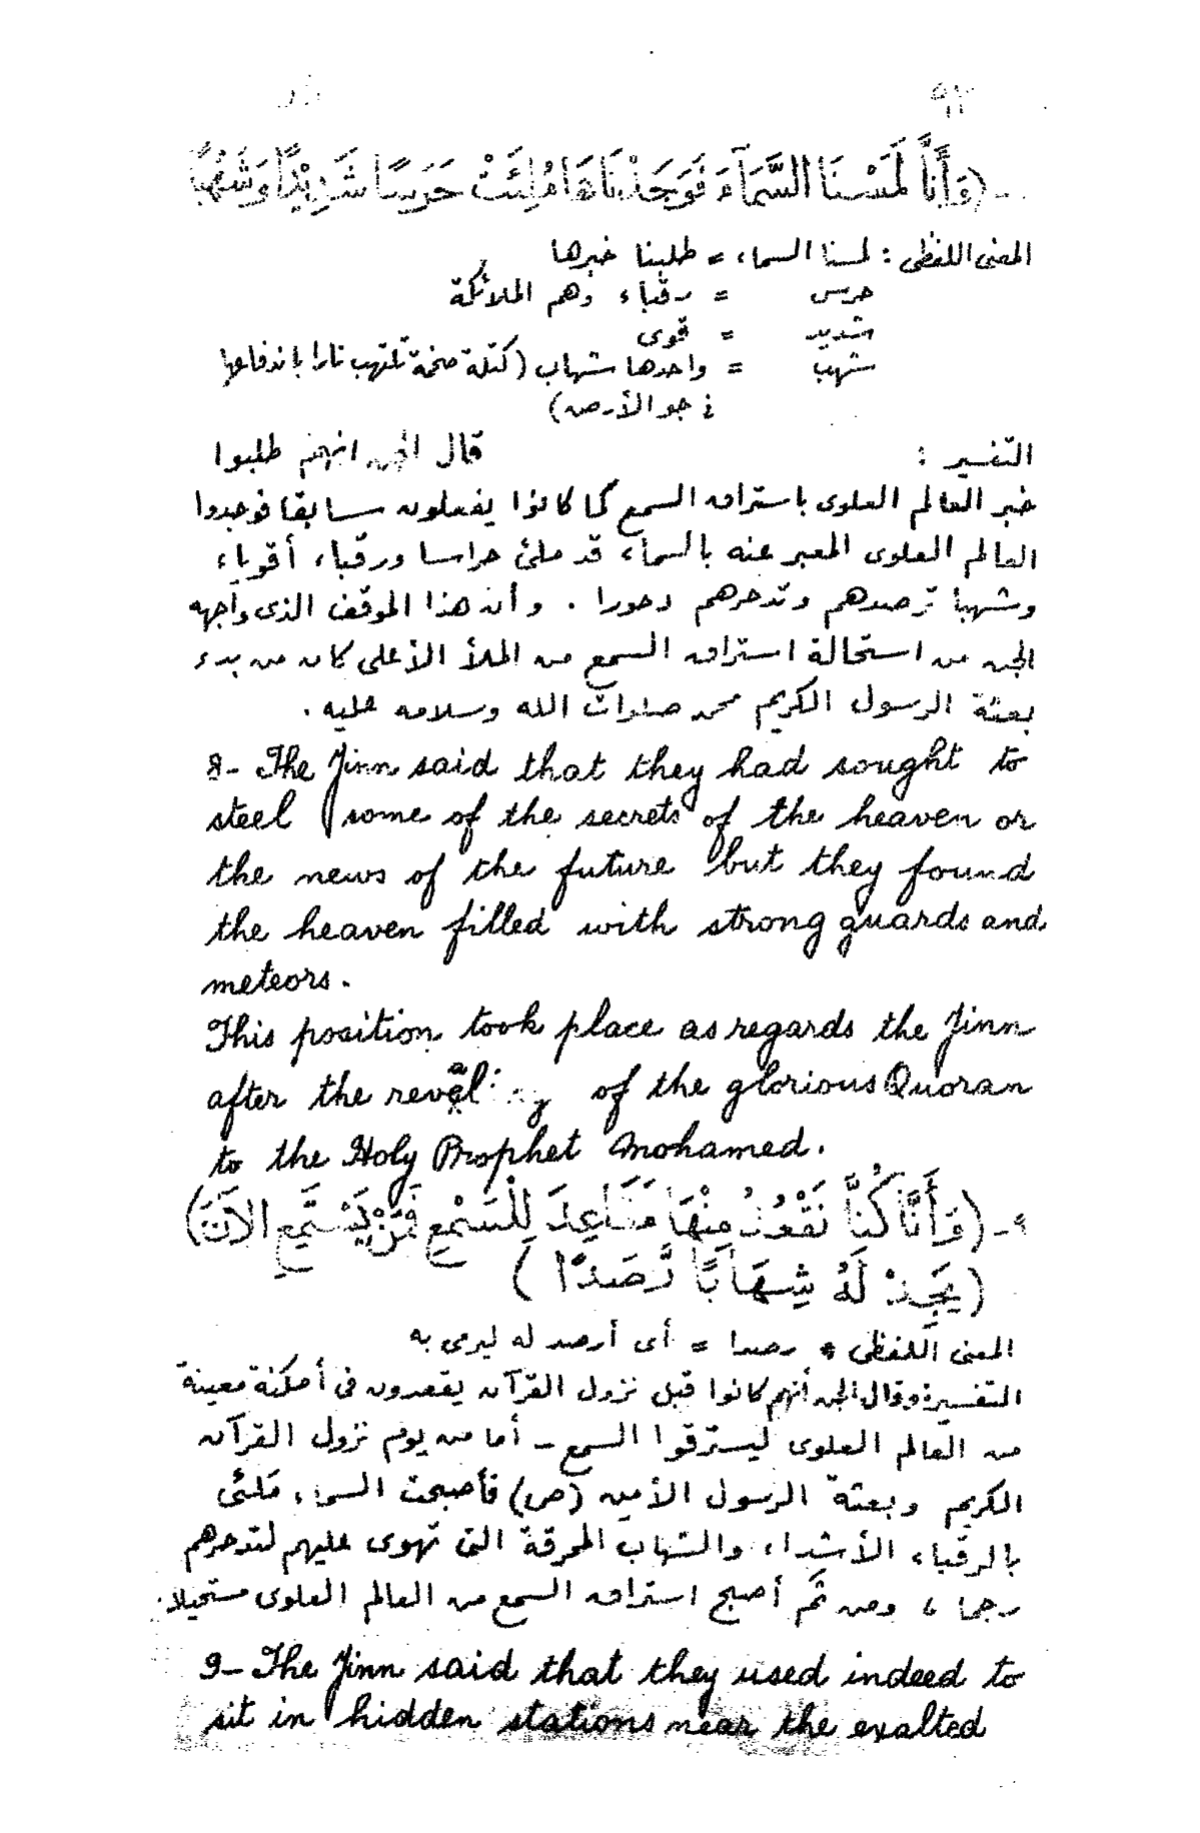 ٩٢
- (وَأَنَّا لَمَسْنَا السَّمَآءَ فَوَجَدْنَاهَا مُلِئَتْ حَرَسًا شَدِيْدًا وَشُهُبًا
المعنى اللفظى : لمسنا السماء = طلبنا خبرها
حرس = رقباء وهم الملائكة
شديد = قوى
شهب = واحدها شهاب (كتلة ضخمة تلتهب نارا باندفاعها
فى جو الأرض)
التفسير : قال الجن انهم طلبوا
خبر العالم العلوى باستراق السمع كما كانوا يفعلون سابقا فوجدوا
العالم العلوى المعبر عنه بالسماء قد ملئ حراسا ورقباء أقوياء
وشهبا ترصدهم وتدحرهم دحورا . وأن هذا الموقف الذى واجهه
الجن من استحالة استراق السمع من الملأ الأعلى كان من بدء
بعثة الرسول الكريم محمد صلوات الله وسلامه عليه .
8- The Jinn said that they had sought to
steel some of the secrets of the heaven or
the news of the future but they found
the heaven filled with strong guards and
meteors.
This position took place as regards the Jinn
after the of the glorious Quoran
to the Holy Prophet Mohamed.
٩- (وَأَنَّا كُنَّا نَقْعُدُ مِنْهَا مَقَاعِدَ لِلْسَمْعِ فَمَنْ يَسْتَمِعِ الآنَ)
(يَجِدْ لَهُ شِهَابًا رَّصَدًا)
المعنى اللفظى : رصدا = أى أرصد له ليرمى به
التفسير : وقال الجن أنهم كانوا قبل نزول القرآن يقعدون فى أمكنة معينة
من العالم العلوى ليسترقوا السمع - أما من يوم نزول القرآن
الكريم وبعثة الرسول الأمين (ص) فأصبحت السماء ملئى
بالرقباء الأشداء والشهاب المحرقة التى تهوى عليهم لتدحرهم
رجما ، ومن ثم أصبح استراق السمع من العالم العلوى مستحيلا .
9- The Jinn said that they used indeed to
sit in hidden stations near the exalted